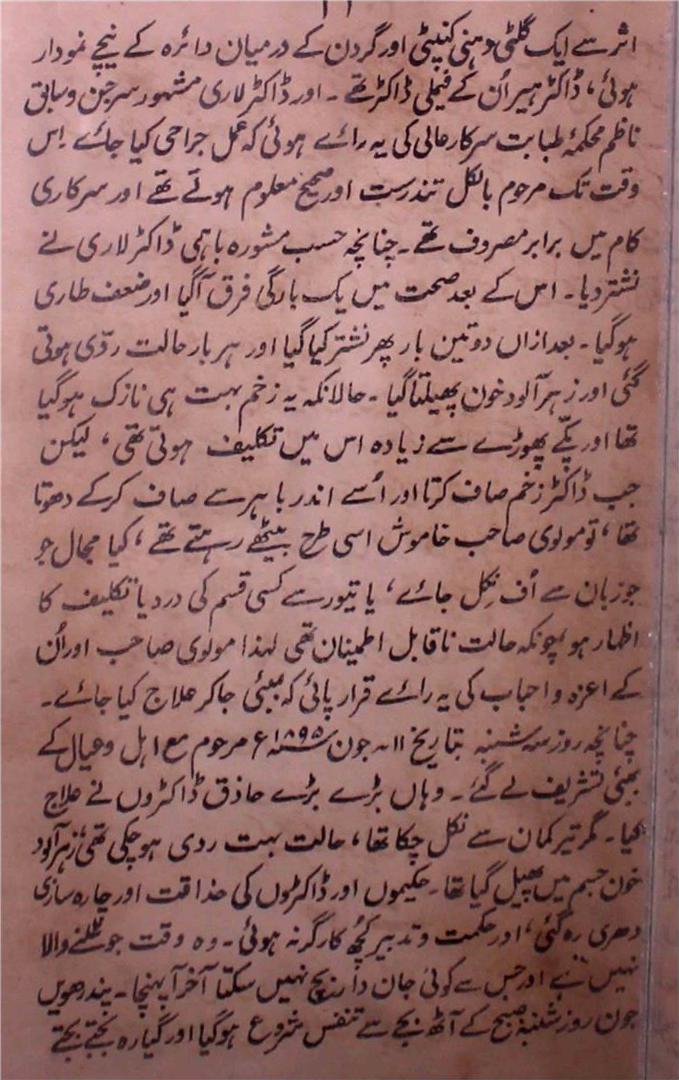 ۱۱
اثر سے ایک گلٹی دہنی کنپٹی اور گردن کے درمیان دائرہ کے نیچے نمودار
ہوئی، ڈاکٹر ہیر اُن کے فیملی ڈاکٹر تھے۔ اور ڈاکٹر لاری مشہور سرجن و سابق
ناظم محکمۂ طبابت سرکار عالی کی یہ رائے ہوئی کہ عمل جراحی کیا جائے اِس
وقت تک مرحوم بالکل تندرست اور صحیح معلوم ہوتے تھے اور سرکاری
کام میں برابر مصروف تھے۔ چنانچہ حسب مشورہ باہمی ڈاکٹر لاری نے
نشتر دیا۔ اس کے بعد صحت میں یک بارگی فرق آگیا اور ضعف طاری
ہوگیا۔ بعد ازاں دو تین بار پھر نشتر کیا گیا اور ہر بار حالت ردّی ہوتی
گئی اور زہر آلود خون پھیلتا گیا۔ حالانکہ یہ زخم بہت ہی نازک ہوگیا
تھا اور پکّے پھوڑے سے زیادہ اس میں تکلیف ہوتی تھی، لیکن
جب ڈاکٹر زخم صاف کرتا اور اُسے اندر باہر سے صاف کرکے دھوتا
تھا، تو مولوی صاحب خاموش اسی طرح بیٹھے رہتے تھے، کیا مجال جو
جو زبان سے اُف نکل جائے، یا تیور سے کسی قسم کی درد یا تکلیف کا
اظہار ہو چونکہ حالت ناقابل اطمینان تھی لہذا مولوی صاحب اور اُن
کے اعزہ و احباب کی یہ رائے قرار پائی کہ بمبئی جاکر علاج کیا جائے۔
چنانچہ روز سہ شنبہ بتاریخ ۱۱۔ جون سنہ ۱۸۹۵ء مرحوم مع اہل و عیال کے
بمبئی تشریف لے گئے۔ وہاں بڑے بڑے حاذق ڈاکٹروں نے علاج
کیا۔ مگر تیر کمان سے نکل چکا تھا، حالت بہت ردی ہوچکی تھی، زہر آلود
خون جسم میں پھیل گیا تھا۔ حکیموں اور ڈاکٹروں کی حذاقت اور چارہ سازی
دھری رہ گئی، اور حکمت و تدبیر کچُھ کارگر نہ ہوئی۔ وہ وقت جو ٹلنے والا
نہیں ہے اور جس سے کوئی جان دار بچ نہیں سکتا آخر آپہنچا۔ پندرھویں
جون روز شنبہ صبح کے آٹھ بجے سے تنفس شروع ہوگیا اور گیارہ بجتے بجتے